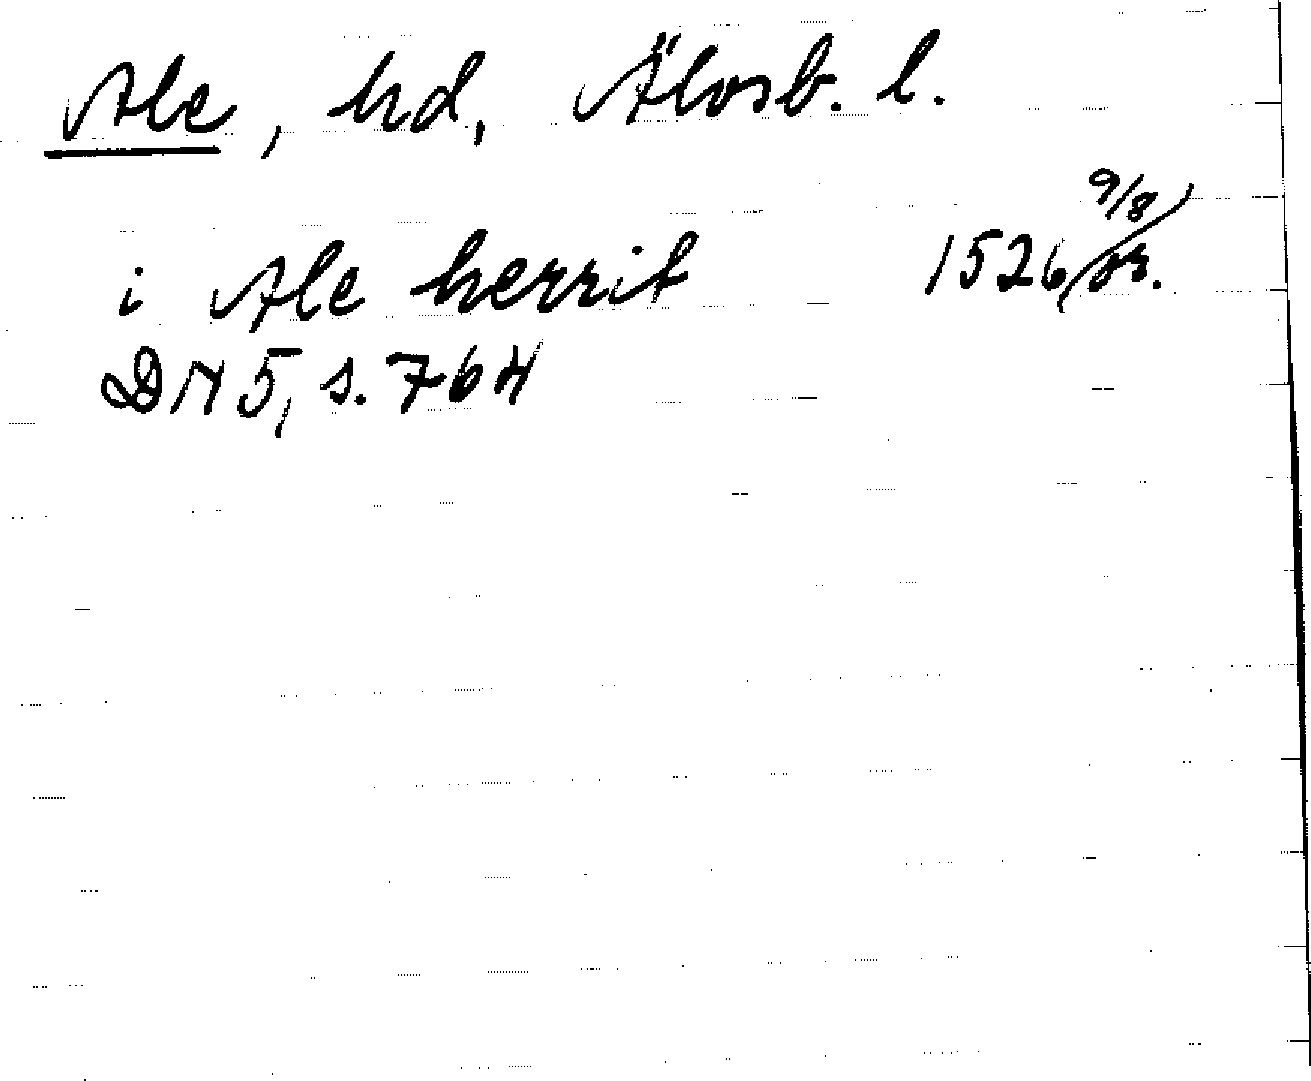 Ale, hd, Älvsb. l.
i Ale herrit 1526 9/8 or.
DN 5, s. 764